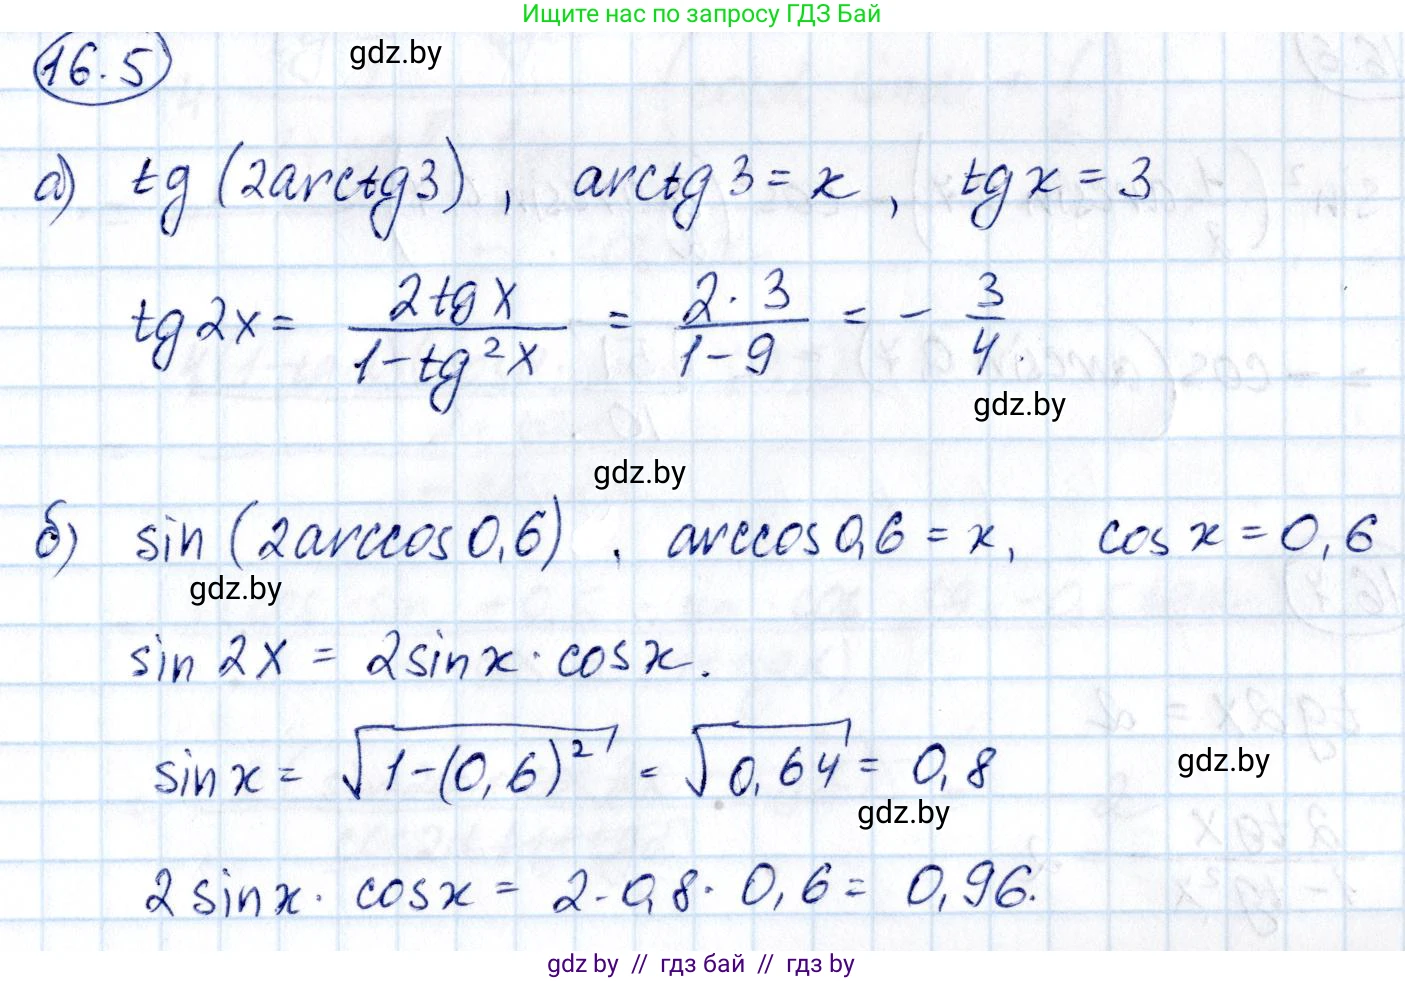 Ищите нас по запросу ГДЗ Бай
16.5 gdz.by
а) tg (2arctg3), arctg 3 = x, tg x = 3
tg 2x = 2 tg x / 1 - tg²x = 2 · 3 / 1 - 9 = - 3 / 4.
gdz.by
gdz.by
б) sin (2arccos 0,6), arccos 0,6 = x, cos x = 0,6
gdz.by
sin 2x = 2 sin x · cos x.
sin x = √1-(0,6)² = √0,64 = 0,8
gdz.by
gdz.by
2 sin x · cos x = 2 · 0,8 · 0,6 = 0,96.
gdz by // гдз бай // гдз by